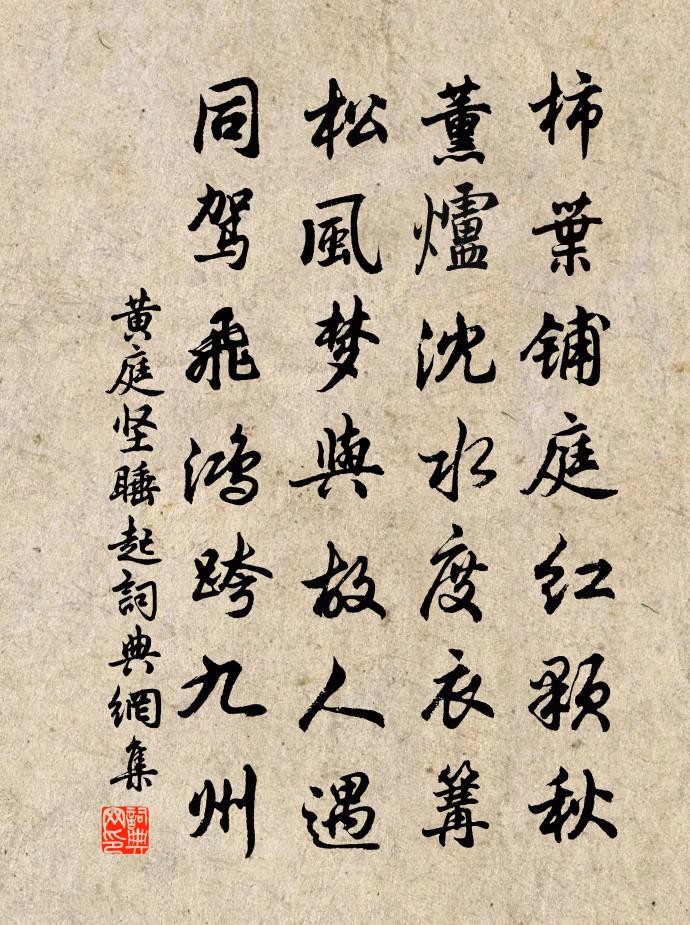 柿葉铺庭红顆秋
薰爐沈水度衣篝
松風梦與故人遇
同驾飛鸿跨九州
黄庭坚睡起詞典網集
詞典网印